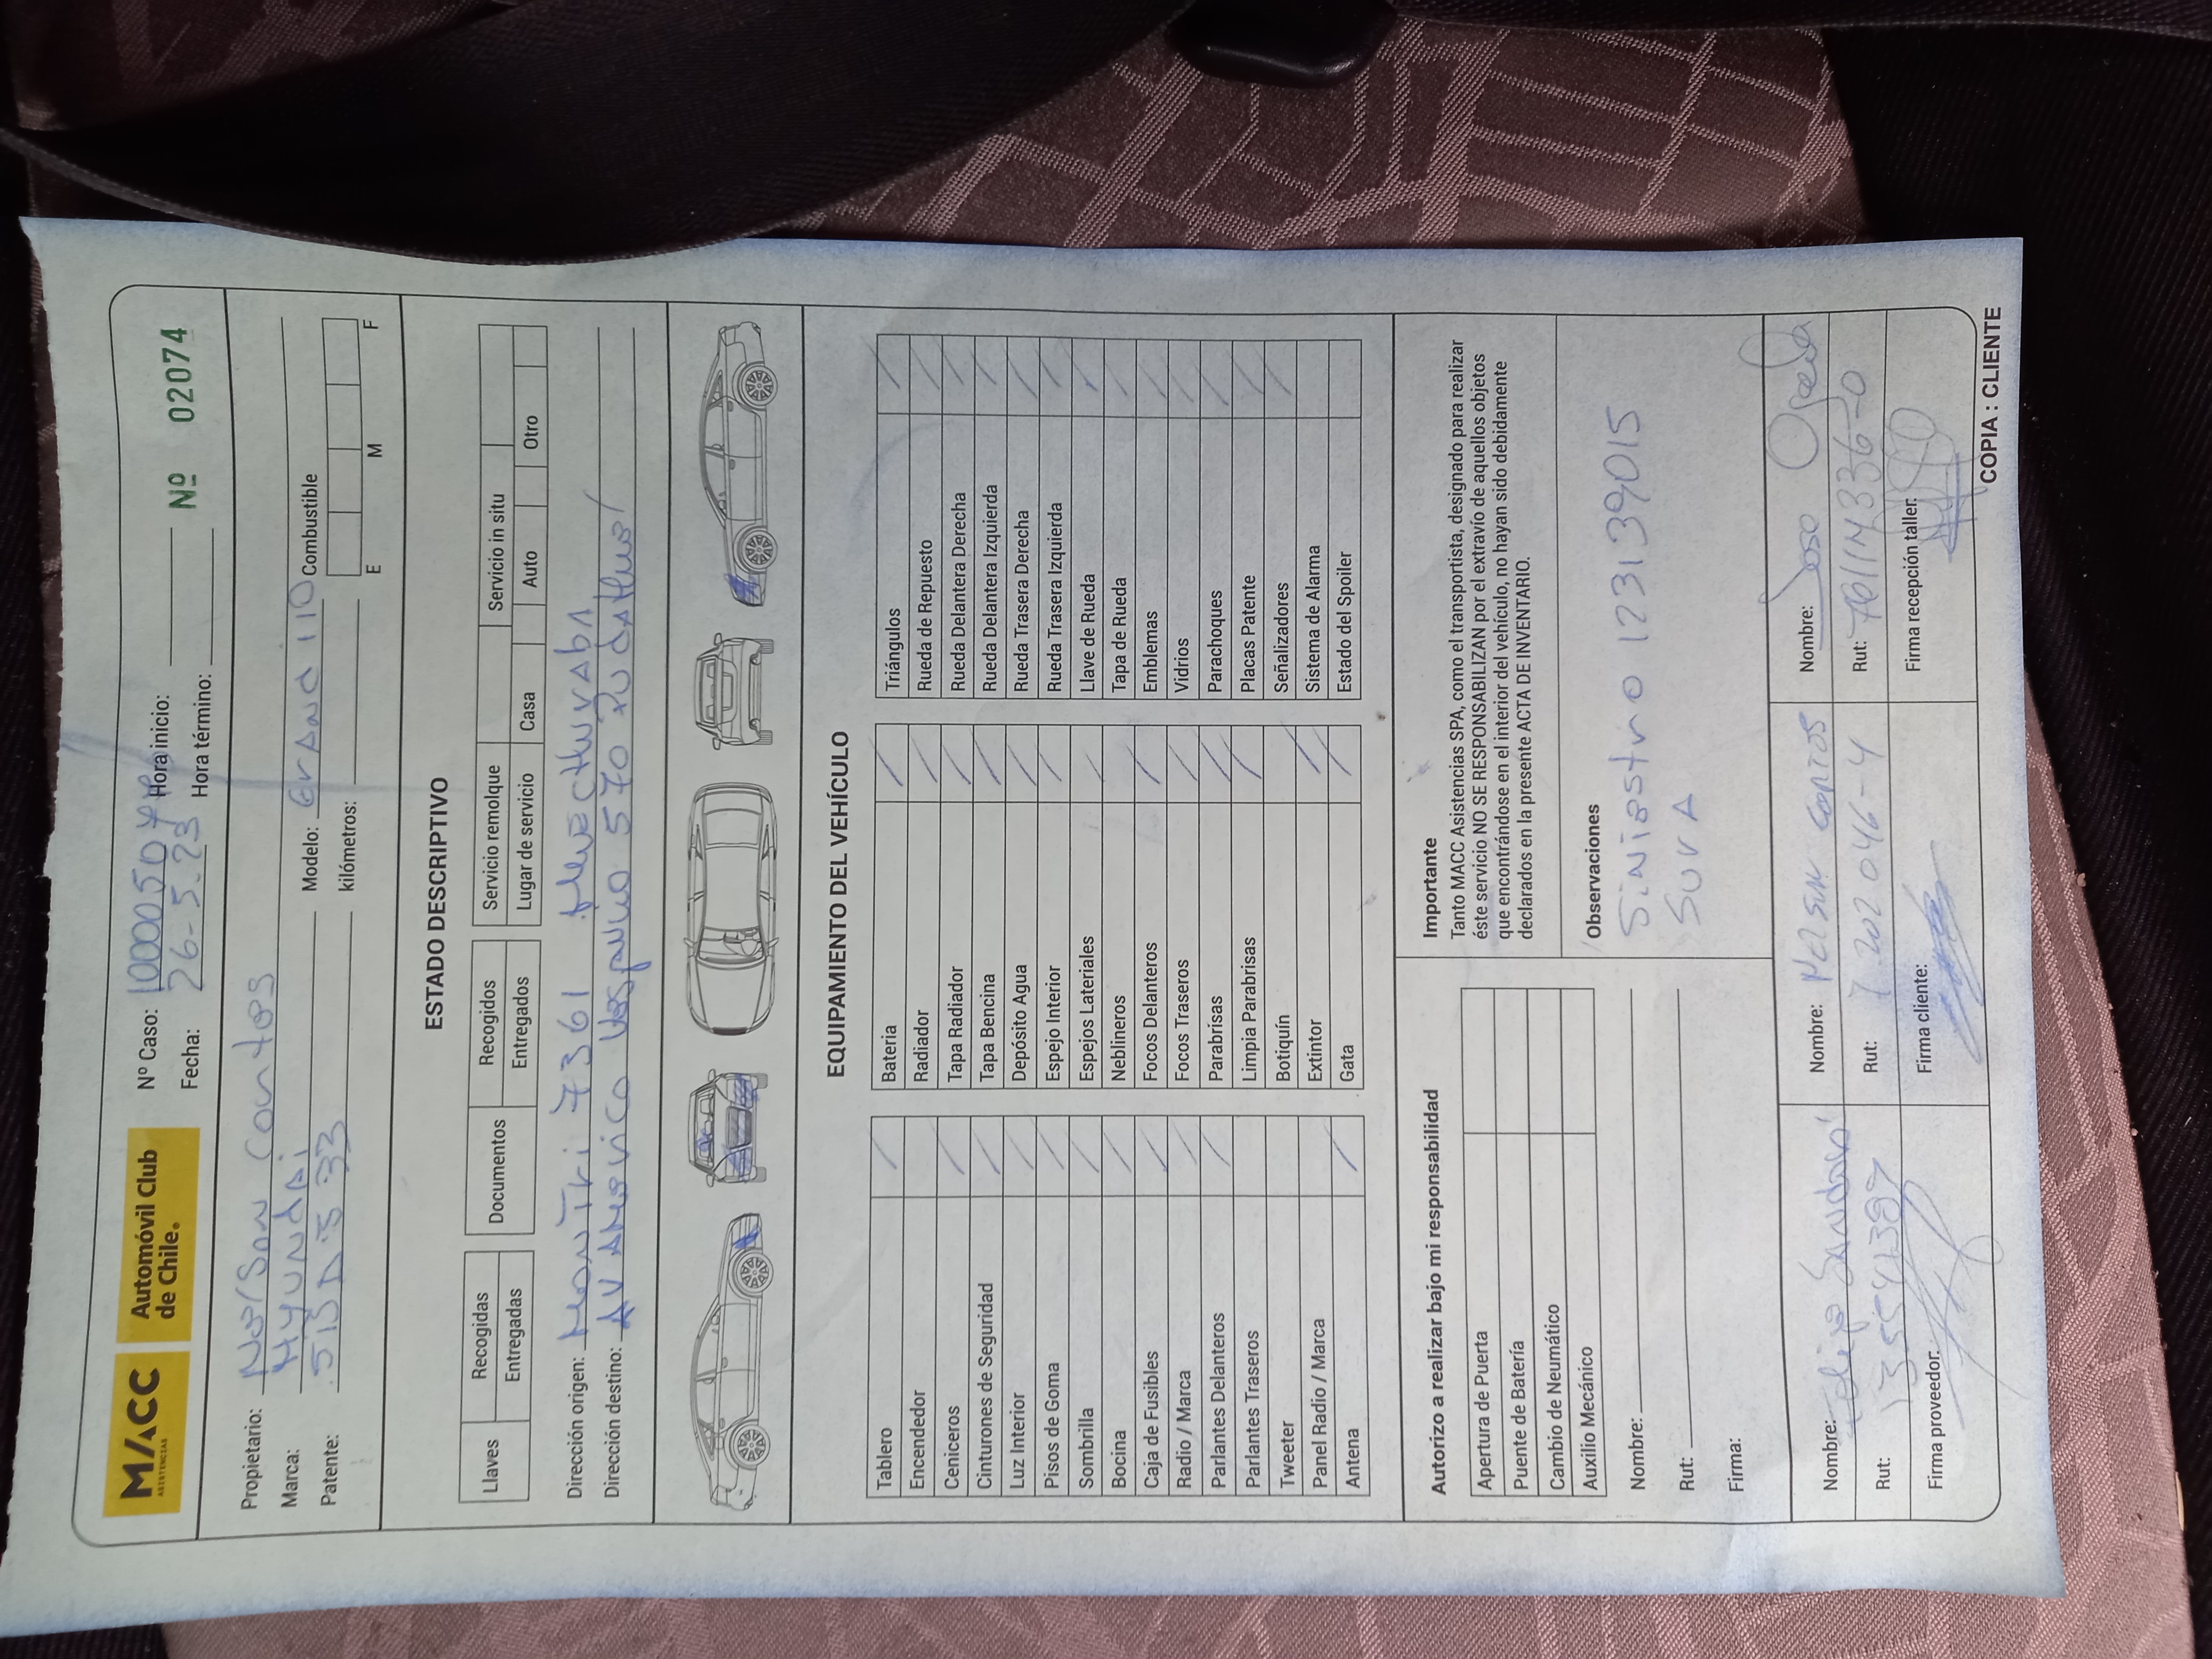 MACC
ASISTENCIAS
Automóvil Club
de Chile.
Nº Caso: Hora inicio:
Fecha: 26-5.23 Hora término:
Nº 02074
Propietario: Contos
Marca: HYUNDAI Modelo: Grand i10 Combustible
Patente: kilómetros: E M F
ESTADO DESCRIPTIVO
Llaves Recogidas Entregadas
Documentos Recogidos Entregados
Servicio remolque Servicio in situ
Lugar de servicio Casa Auto Otro
Dirección origen: 7361
Dirección destino: AV Americo Vespusio 570 Pudahuel
EQUIPAMIENTO DEL VEHÍCULO
Tablero
Encendedor
Ceniceros
Cinturones de Seguridad
Luz Interior
Pisos de Goma
Sombrilla
Bocina
Caja de Fusibles
Radio / Marca
Parlantes Delanteros
Parlantes Traseros
Tweeter
Panel Radio / Marca
Antena
Bateria
Radiador
Tapa Radiador
Tapa Bencina
Depósito Agua
Espejo Interior
Espejos Lateriales
Neblineros
Focos Delanteros
Focos Traseros
Parabrisas
Limpia Parabrisas
Botiquín
Extintor
Gata
Triángulos
Rueda de Repuesto
Rueda Delantera Derecha
Rueda Delantera Izquierda
Rueda Trasera Derecha
Rueda Trasera Izquierda
Llave de Rueda
Tapa de Rueda
Emblemas
Vidrios
Parachoques
Placas Patente
Señalizadores
Sistema de Alarma
Estado del Spoiler
Autorizo a realizar bajo mi responsabilidad
Apertura de Puerta
Puente de Batería
Cambio de Neumático
Auxilio Mecánico
Nombre:
Rut:
Firma:
Importante
Tanto MACC Asistencias SPA, como el transportista, designado para realizar
éste servicio NO SE RESPONSABILIZAN por el extravío de aquellos objetos
que encontrándose en el interior del vehículo, no hayan sido debidamente
declarados en la presente ACTA DE INVENTARIO.
Observaciones
Siniestro 123139015
Sura
Nombre: Sandoval
Rut:
Firma proveedor:
Nombre: Nelson Contos
Rut: 7.202046-4
Firma cliente:
Nombre: Jose
Rut:
Firma recepción taller:
COPIA : CLIENTE